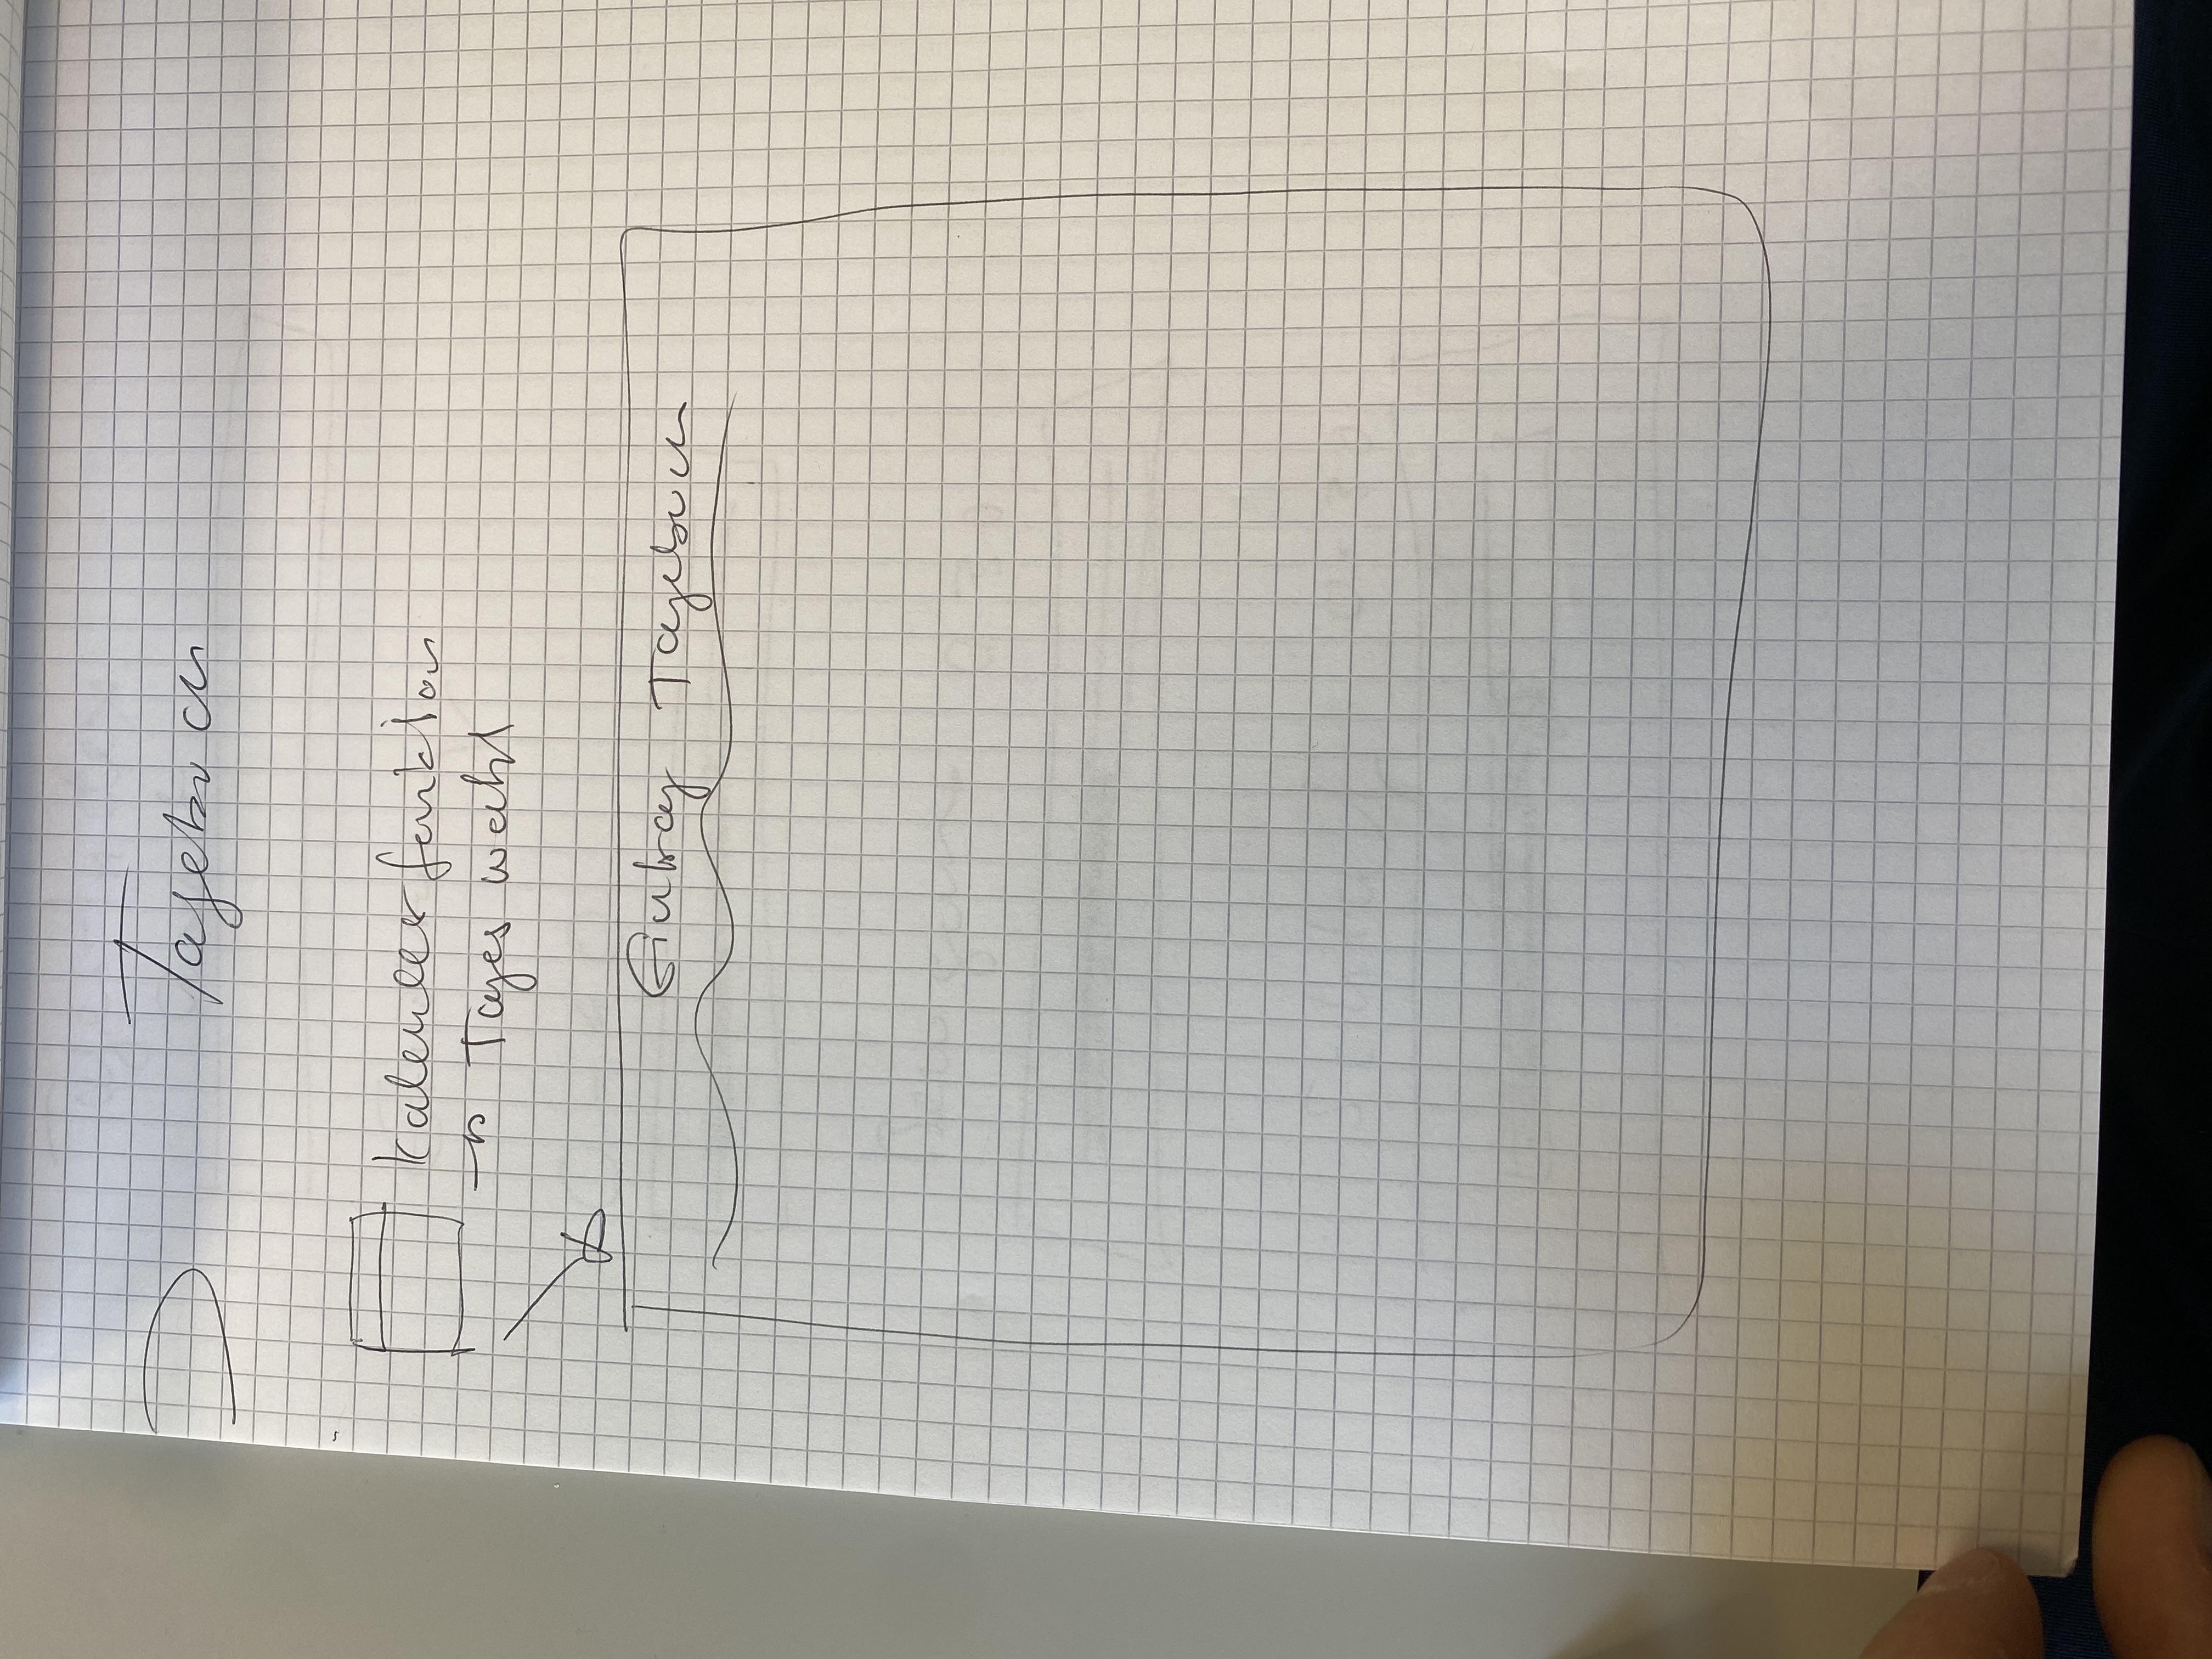 Tagebuch
Kalenderfunktion
→ Tageswahl
Eintrag Tagebuch